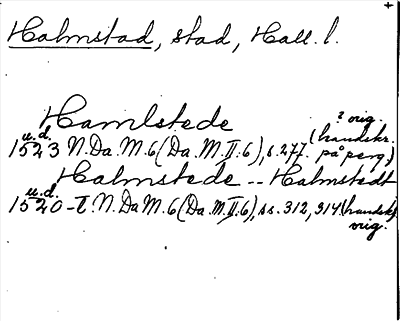 Halmstad, stad, Hall. l.
Hamlstede
? orig.
u.d. (handskr.
1523 N.Da.M.6 (Da.M.II.6), s.277. på perg.)
Halmstede -- Halmstedt
u.d.
1520-t. N.DaM.6 (Da.M.II.6), ss. 312, 314 (handskr.
orig.